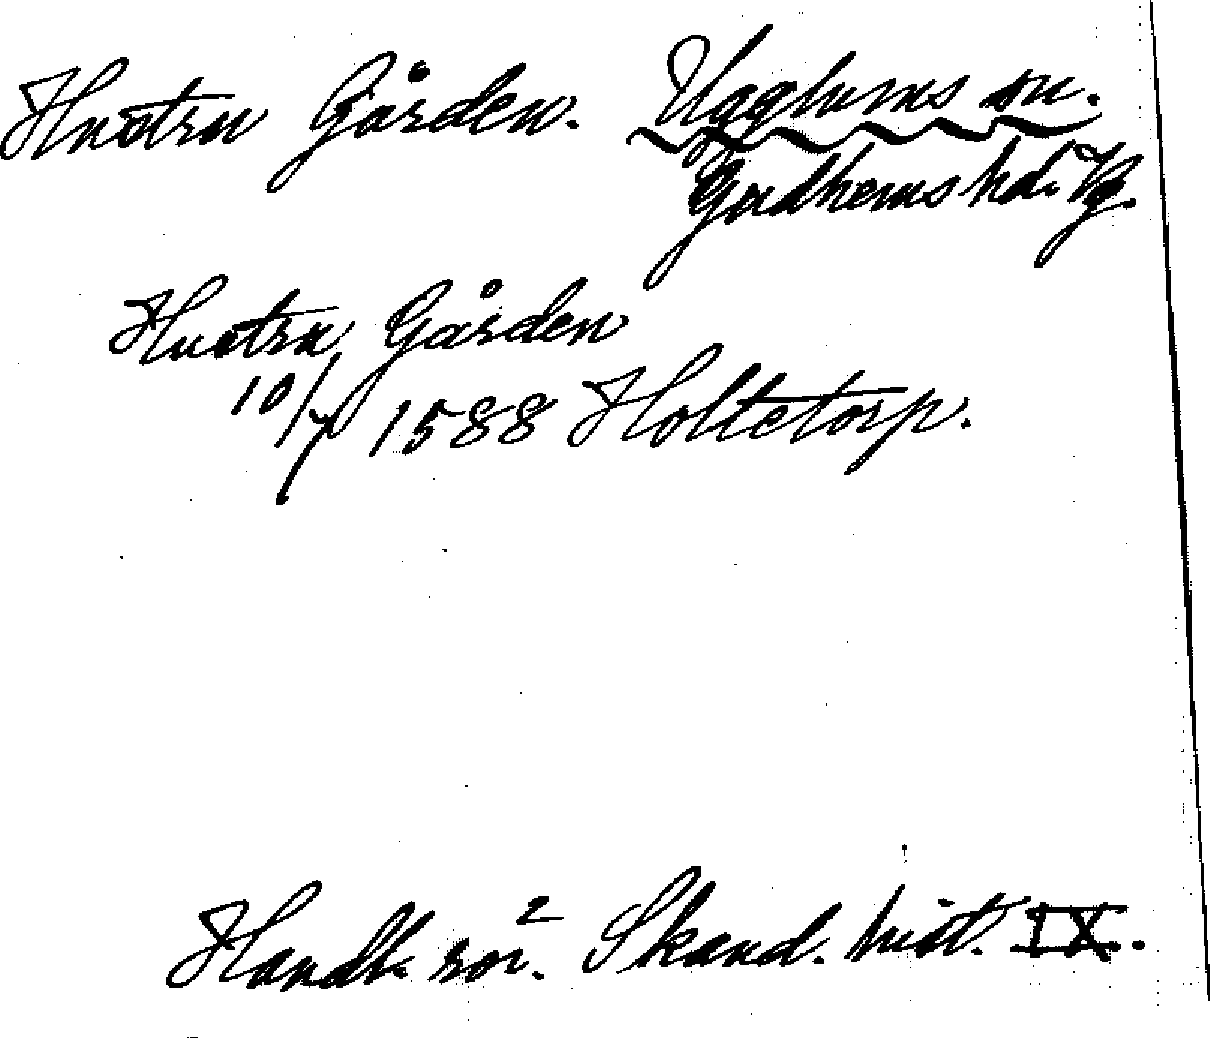 Hustru Gården. Ugglums sn.
Gudhems hd. Vg.
Hustru Gården
10/7 1588 Holtetorp.
Handl. rör. Skand. hist. IX.